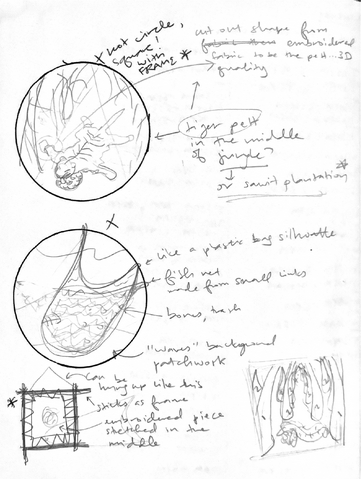 X not circle,
square!
with
FRAME *
cut out shape from
embroidered
fabric to be the pelt...3D
quality
tiger pelt
in the middle
of jungle?
or sawit plantation *
X
like a plastic bag silhouette
fish net
made from small links
bones, trash
"waves" background
patchwork
can be
hung up like this
sticks as frame
*
embroidered piece
stretched in the
middle